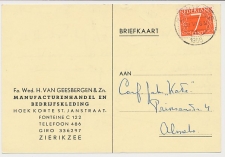 BRIEFKAART
NEDERLAND
7
Fa. Wed. H. VAN GEESBERGEN & Zn.
MANUFACTURENHANDEL EN
BEDRIJFSKLEDING
HOEK KORTE ST. JANSTRAAT-
FONTEINE C 122
TELEFOON 486
GIRO 336297
ZIERIKZEE
AAN
Conf. fabr. "Kato"
Prinsenstr. 4
Almelo